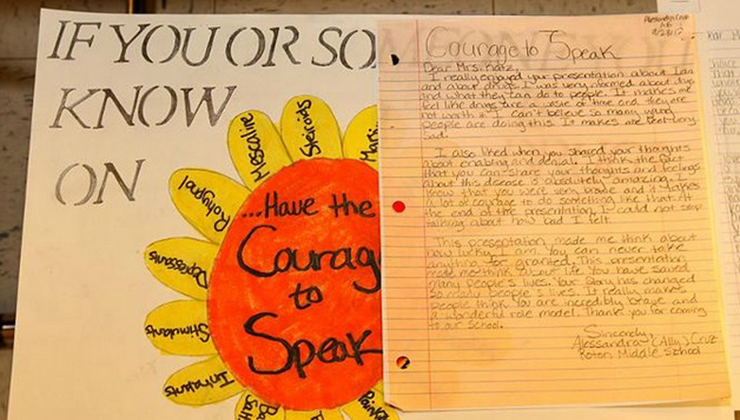 IF YOU OR SO
KNOW
ON
Mescaline
Steroids
Mari
Rohypnol
Depressants
Stimulants
Inhalants
Ba
Sal
...Have the
Courag
to
Speak
Courage to Speak
Dear Mrs. Katz,
I really enjoyed your presentation about Ian
and about drugs. I was very informed about drugs
and what they can do to people. It makes me
feel like drugs are a waste of time and they are
not worth it. I can't believe so many young
people are doing this. It makes me feel very
sad.
I also liked when you shared your thoughts
about enabling and denial. I think the fact
that you can share your thoughts and feelings
about this disease is absolutely amazing. I
know that you were very brave and it takes
a lot of courage to do something like that. At
the end of the presentation, I could not stop
talking about how bad I felt.
This presentation made me think about
how lucky I am. You can never take
anything for granted. This presentation
made me think about life. You have saved
many people's lives. Your story has changed
so many people's lives. It really makes
people think. You are incredibly brave and
a wonderful role model. Thank you for coming
to our school.
Sincerely,
Alessandra (Ally) Cruz
Roton Middle School